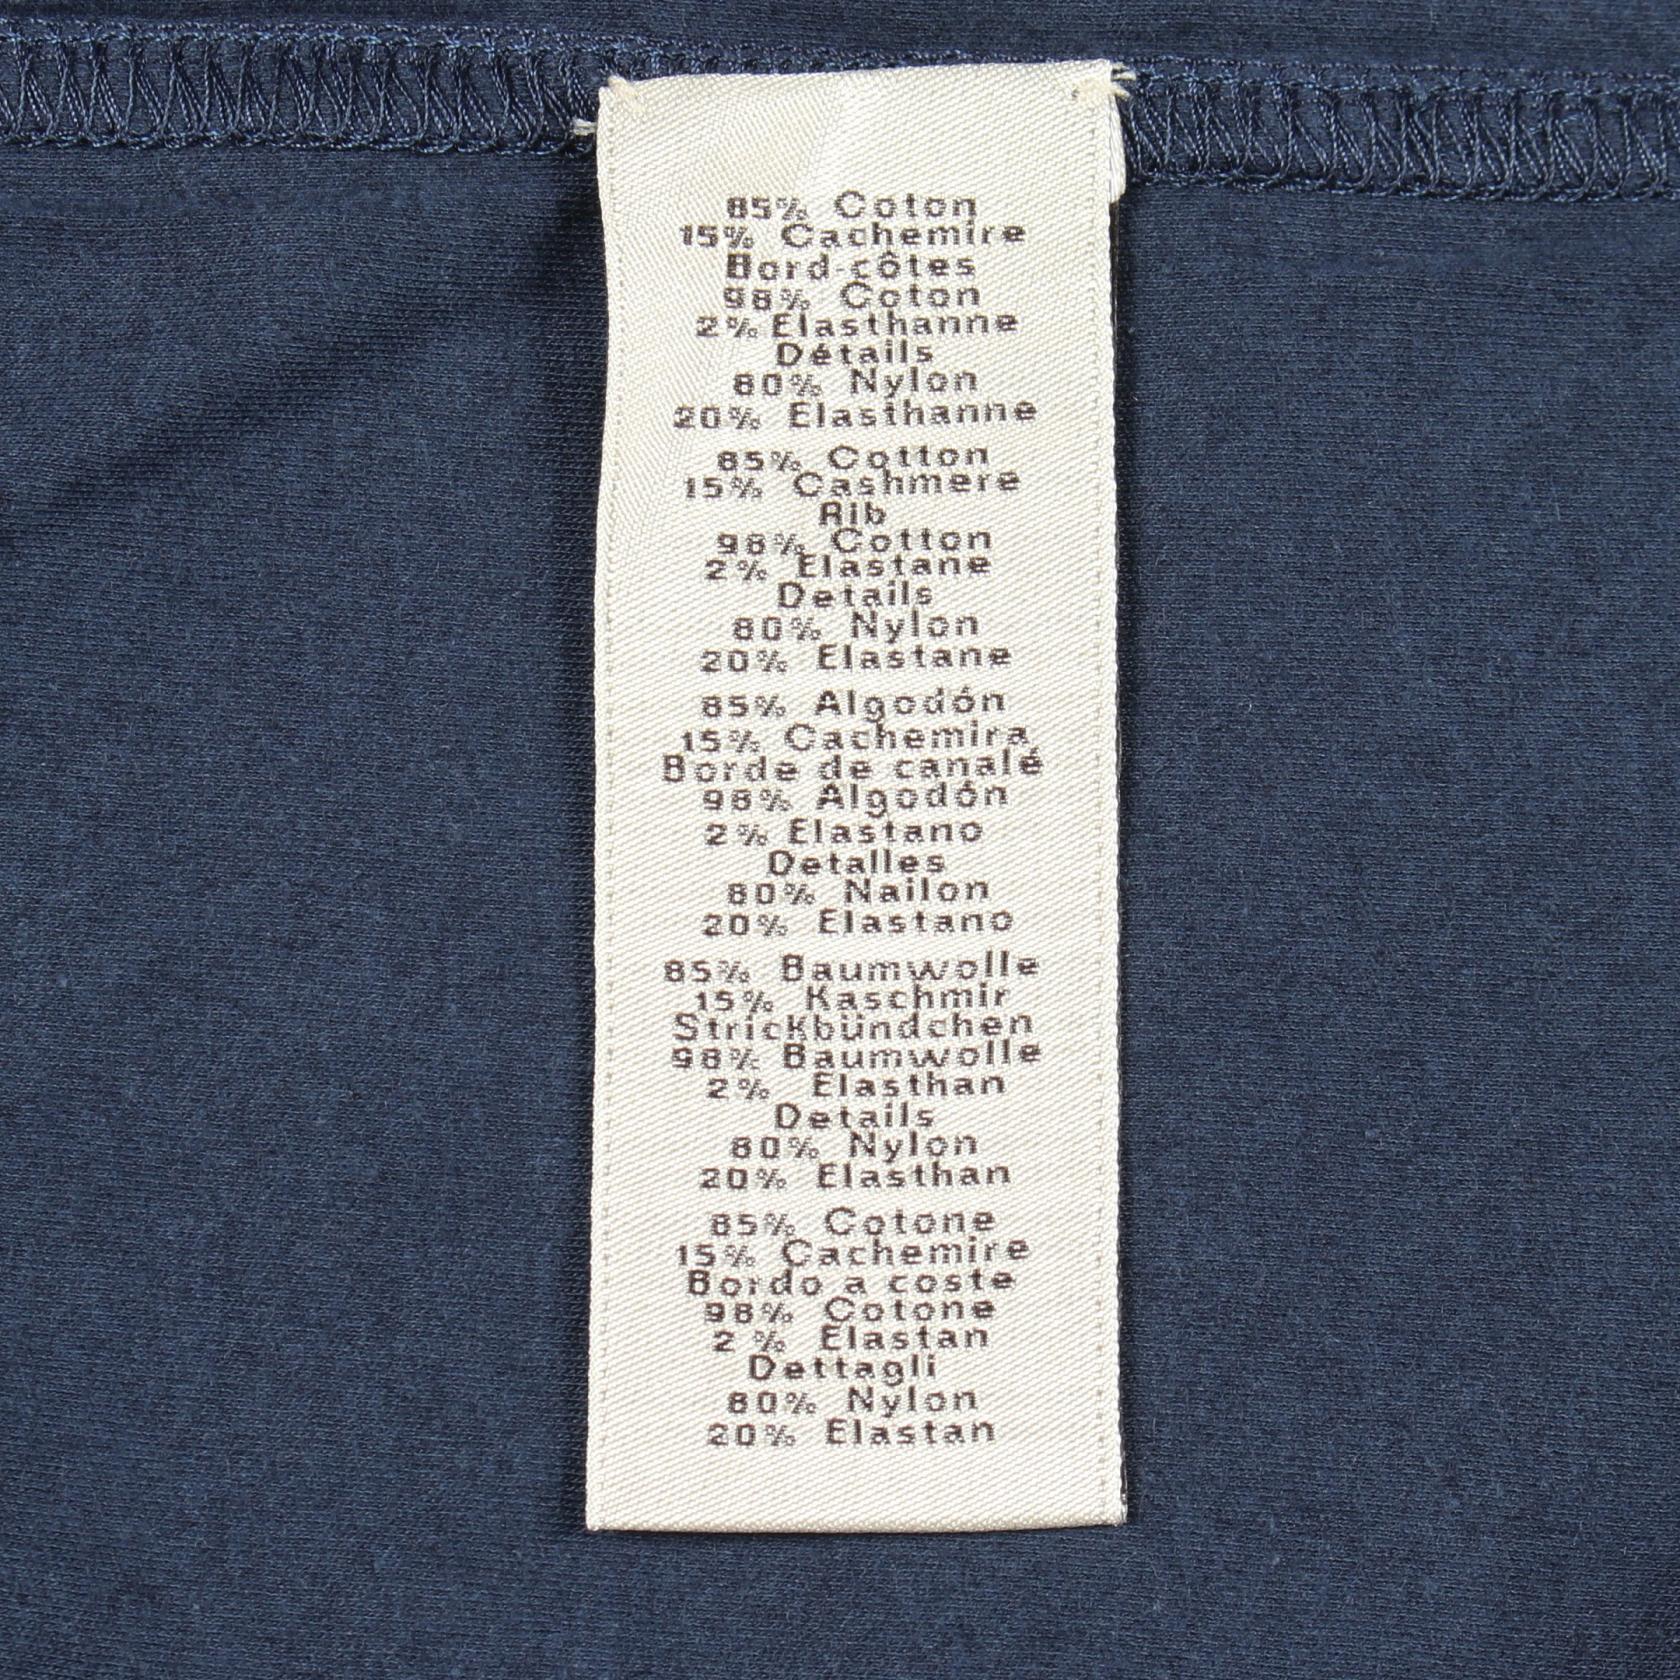 85% Coton
15% Cachemire
Bord-côtes
98% Coton
2% Elasthanne
Détails
80% Nylon
20% Elasthanne
85% Cotton
15% Cashmere
Rib
98% Cotton
2% Elastane
Details
80% Nylon
20% Elastane
85% Algodón
15% Cachemira
Borde de canalé
98% Algodón
2% Elastano
Detalles
80% Nailon
20% Elastano
85% Baumwolle
15% Kaschmir
Strickbündchen
98% Baumwolle
2% Elasthan
Details
80% Nylon
20% Elasthan
85% Cotone
15% Cachemire
Bordo a coste
98% Cotone
2% Elastan
Dettagli
80% Nylon
20% Elastan